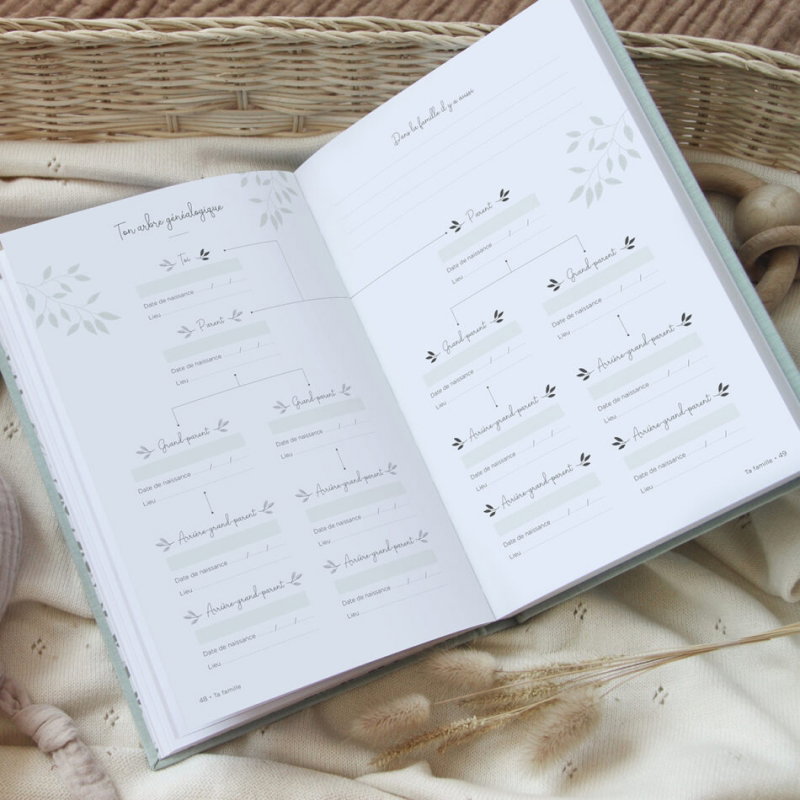 Ton arbre généalogique
Toi
Date de naissance / /
Lieu
Parent
Date de naissance / /
Lieu
Grand-parent
Date de naissance / /
Lieu
Grand-parent
Date de naissance / /
Lieu
Arrière-grand-parent
Date de naissance / /
Lieu
Arrière-grand-parent
Date de naissance / /
Lieu
Arrière-grand-parent
Date de naissance / /
Lieu
Arrière-grand-parent
Date de naissance / /
Lieu
48 • Ta famille
Dans la famille il y a aussi
Parent
Date de naissance / /
Lieu
Grand-parent
Date de naissance / /
Lieu
Grand-parent
Date de naissance / /
Lieu
Arrière-grand-parent
Date de naissance / /
Lieu
Arrière-grand-parent
Date de naissance / /
Lieu
Arrière-grand-parent
Date de naissance / /
Lieu
Arrière-grand-parent
Date de naissance / /
Lieu
Ta famille • 49